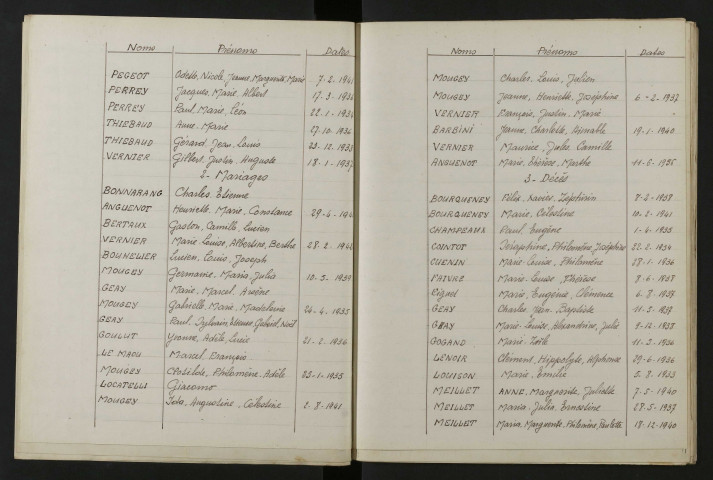 Noms Prénoms Dates
PEGEOT Odette, Nicole, Jeanne, Marguerite, Marie 7-2-1941
PERREY Jacques, Marie, Albert 17-3-193
PERREY Paul, Marie, Léon 22-1-193
THIEBAUD Anne-Marie 27-10-1936
THIEBAUD Gérard, Jean, Louis 23-12-1933
VERNIER Gilbert, Justin, Auguste 18-1-1937
2- Mariages
BONNARANG Charles, Etienne
ANGUENOT Henriette, Marie, Constance 29-4-194
BERTAUX Gaston, Camille, Lucien
VERNIER Marie Louise, Albertine, Berthe 28-2-194
BOUHELIER Lucien, Louis, Joseph
MOUGEY Germaine, Maria, Julia 10-5-1939
GEAY Marie, Marcel, Arsène
MOUGEY Gabrielle, Marie, Madeleine 24-4-1935
GEAY Paul, Sylvain, Gabriel, Noël
GOULUT Yvonne, Adèle, Lucie 21-2-1936
LE MAOU Marcel, François
MOUGEY Clotilde, Philomène, Adèle 23-1-1935
LOCATELLI Giacomo
MOUGEY Ida, Augustine, Célestine 2-8-1941
Noms Prénoms Dates
MOUGEY Charles, Louis, Julien
MOUGEY Jeanne, Henriette, Joséphine 6-2-1937
VERNIER François, Justin, Marie -
BARBINI Jeanne, Charlotte, Aimable 19-1-1940
VERNIER Maurice, Jules, Camille
ANGUENOT Marie, Thérèse, Marthe 11-6-1936
3- Décès
BOURQUENEY Félix, Xavier, Zéphirin 8-2-1938
BOURQUENEY Marie, Célestine 10-2-1941
CHAMPEAUX Paul, Eugène 1-6-1935
COINTOT Joséphine, Philomène, Joséphine 22-2-1934
CUENIN Marie-Louise, Philomène 28-1-1936
FAIVRE Marie-Louise, Thérèse 8-6-1938
Marie, Eugénie, Clémence 6-8-1937
GEAY Charles, Jean-Baptiste 11-5-1937
GEAY Marie-Louise, Alexandrine, Julie 9-12-1938
GOGAND Marie, Zoé 11-3-1936
LENOIR Clément, Hippolyte, Alphonse 29-6-1936
LOUISON Marie, Emilie 5-8-1933
MEILLET ANNE, Marguerite, Juliette 7-2-1940
MEILLET Maria, Julia, Ernestine 28-5-1937
MEILLET Maria, Marguerite, Philomène, Paulette 18-12-1940